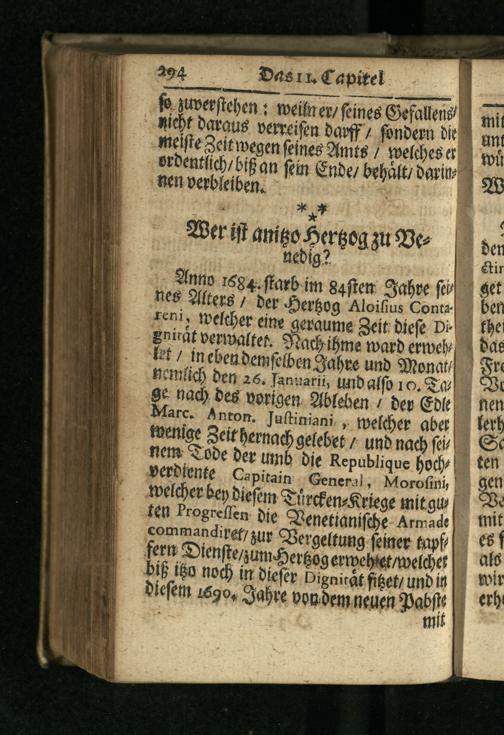 294 Das 11. Capitel
so zuverstehen : weiln er/ seines Gefallens/
nicht daraus verreisen darff / sondern die
meiste Zeit wegen seines Amts / welches er
ordentlich/ biß an sein Ende/ behält/ darin-
nen verbleiben.
* * *
Wer ist anitzo Hertzog zu Ve-
nedig?
Anno 1684. starb im 84sten Jahre sei-
nes Alters / der Hertzog Aloisius Conta-
reni, welcher eine geraume Zeit diese Di-
gnität verwaltet. Nach ihme ward erweh-
let / in eben demselben Jahre und Monat/
nemlich den 26. Januarii, und also 10. Ta-
ge nach des vorigen Ableben / der Edle
Marc. Anton. Justiniani , welcher aber
wenige Zeit hernach gelebet / und nach sei-
nem Tode der umb die Republique hoch-
verdiente Capitain General, Morosini,
welcher bey diesem Türcken-Kriege mit gu-
ten Progressen die Venetianische Armade
commandiret/ zur Vergeltung seiner tapf-
fern Dienste/ zum Hertzog erwehlet/ welcher
biß itzo noch in dieser Dignität sitzet/ und in
diesem 1690. Jahre von dem neuen Pabste
mit